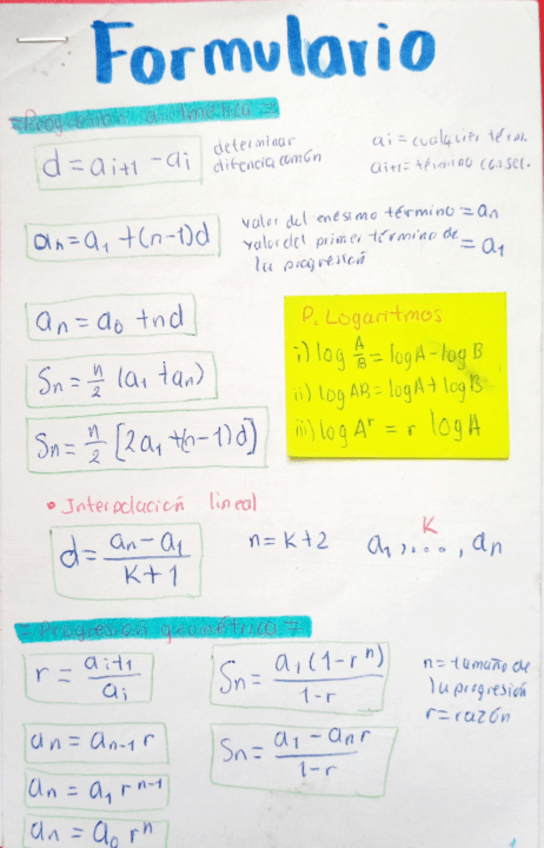 Formulario
=Progresión aritmética=
d = ai+1 - ai
determinar
diferencia común
ai = cualquier térm.
ai+1 = término consec.
an = a1 + (n-1)d
valor del enésimo término = an
valor del primer término de
la progresión = a1
an = a0 + nd
Sn = n/2 (a1 + an)
Sn = n/2 [2a1 + (n-1)d]
P. Logaritmos
i) log A/B = log A - log B
ii) log AB = log A + log B
iii) log A^r = r log A
• Interpolación lineal
d = (an - a1)/(K+1)
n = K+2
K
a1, ...., an
=Progresión geométrica=
r = ai+1/ai
Sn = a1(1-r^n)/(1-r)
n = tamaño de
la progresión
r = razón
an = an-1 r
Sn = (a1 - an r)/(1-r)
an = a1 r^n-1
an = a0 r^n
1